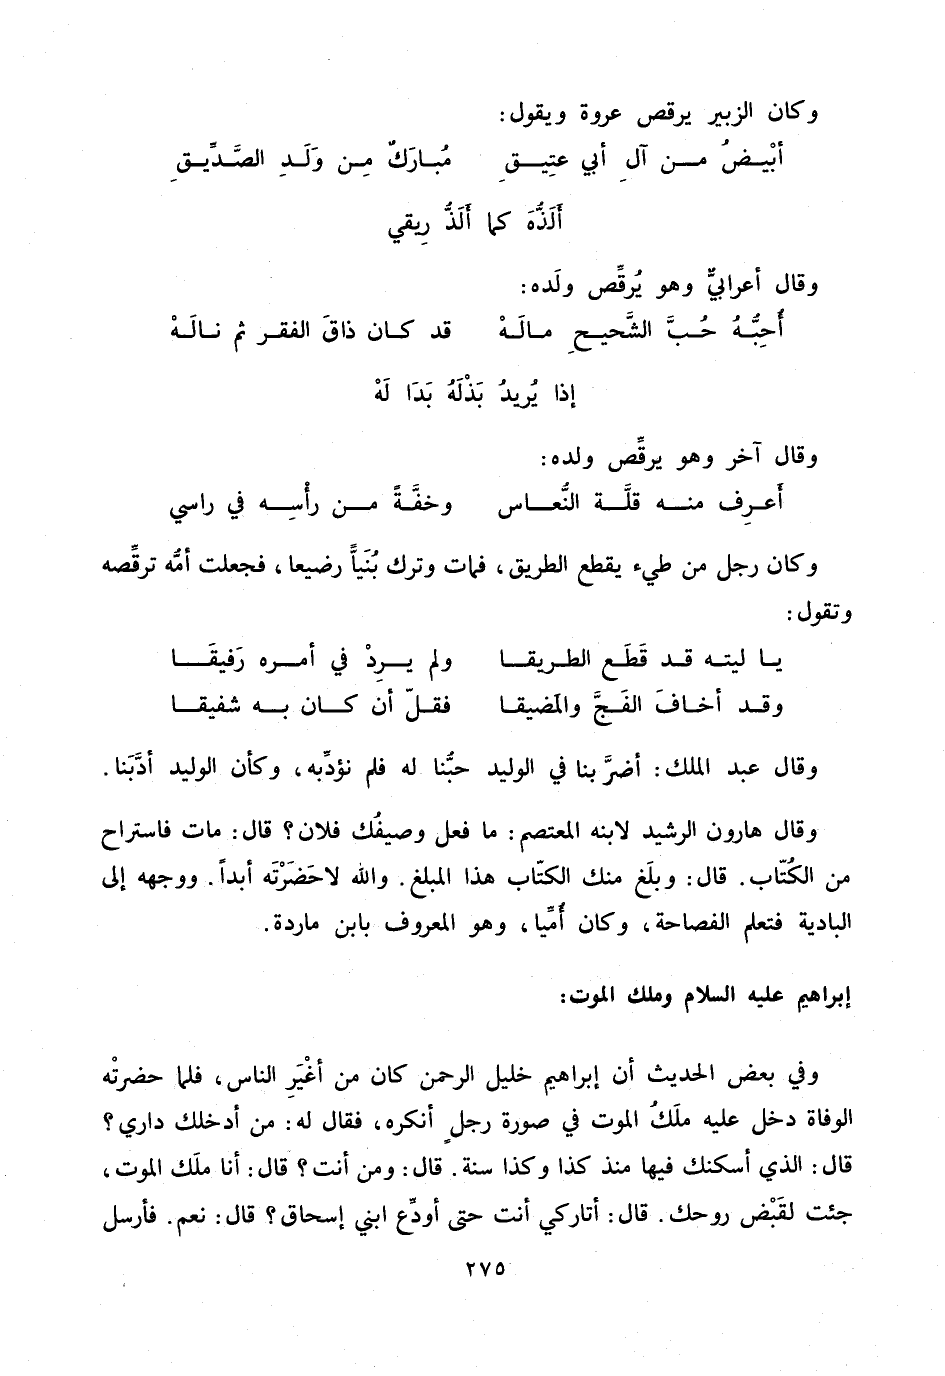 وكان الزبير يرقص عروة ويقول:
أبْيَـضُ مـن آلِ أبي عتِيـقِ مُبارَكٌ مِن وَلَدِ الصَّدِّيـقِ
أَلَذُّهَ كما أَلَذُّ رِيقي
وقال أعرابيٌّ وهو يُرقِّص ولَده:
أُحِبُّـهُ حُـبَّ الشَّحيـحِ مـالَهْ قد كـان ذاقَ الفقـر ثم نـالَهْ
إذا يُرِيدُ بَذْلَهُ بَدَا لَهْ
وقال آخر وهو يرقِّص ولده:
أَعـرِف منـه قلَّـة النُّعـاس وخفَّـةً مـن رأْسِـه في راسي
وكان رجل من طيء يقطع الطريق، فمات وترك بُنَيّاً رضيعا، فجعلت أمُّه ترقِّصه
وتقول:
يـا ليتـه قـد قَطَـع الطـريقـا ولم يـرِدْ في أمـره رَفيقَـا
وقـد أخـافَ الفَـجَّ والمَضيقـا فقـلّ أن كـان بـه شفيقـا
وقال عبد الملك: أضرَّ بنا في الوليد حبُّنا له فلم نؤدِّبه، وكأن الوليد أدَّبَنا.
وقال هارون الرشيد لابنه المعتصم: ما فعل وصيفُك فلان؟ قال: مات فاستراح
من الكُتّاب. قال: وبلَغ منك الكتّاب هذا المبلغ. والله لاحَضَرْتَه أبداً. ووجهه إلى
البادية فتعلم الفصاحة، وكان أُمِّيا، وهو المعروف بابن ماردة.
إبراهيم عليه السلام وملك الموت:
وفي بعض الحديث أن إبراهيم خليل الرحمن كان من أغْيَرِ الناس، فلما حضرتْه
الوفاة دخل عليه ملَكُ الموت في صورة رجلٍ أنكره، فقال له: من أدخلك داري؟
قال: الذي أسكنك فيها منذ كذا وكذا سنة. قال: ومن أنت؟ قال: أنا ملَك الموت،
جئت لقَبْض روحك. قال: أتاركي أنت حتى أودِّع ابني إسحاق؟ قال: نعم. فأرسل
٢٧٥